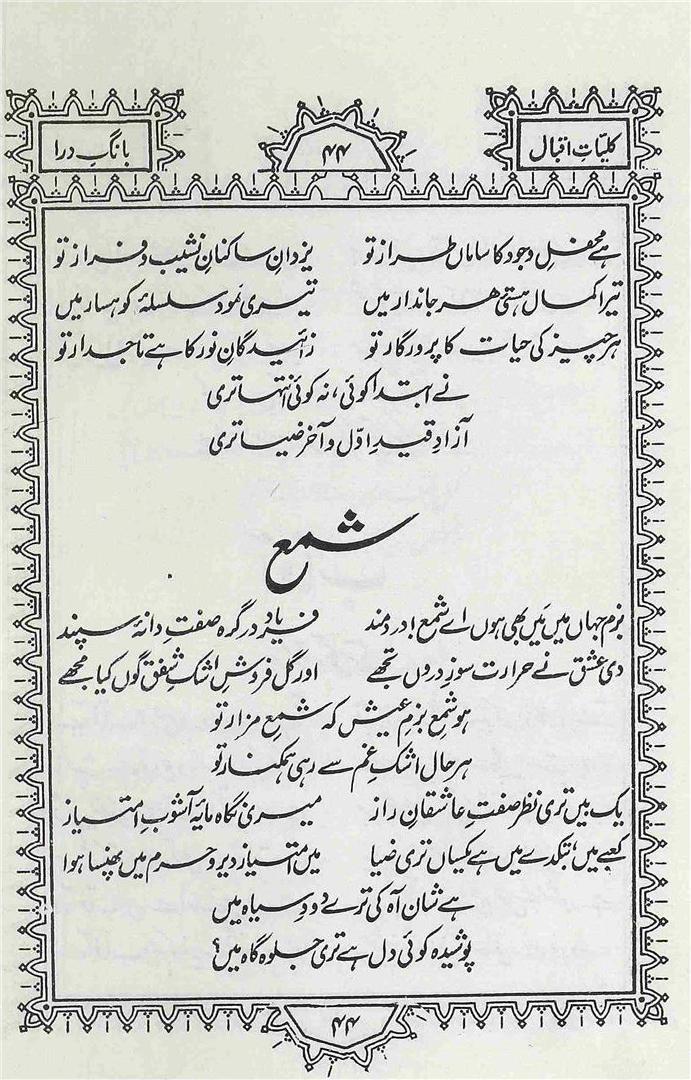 کلیّاتِ اقبال ۴۴ بانگِ درا
ہے محفلِ وجود کا ساماں طراز تو یزدانِ ساکنانِ نشیب و فراز تو
تیرا کمال ہستیِ ہر جاندار میں تیری نمود سلسلۂ کوہسار میں
ہر چیز کی حیات کا پروردگار تو زائیدگانِ نور کا ہے تاجدار تو
نے ابتدا کوئی، نہ کوئی انتہا تری
آزادِ قیدِ اوّل و آخر ضیا تری
شمع
بزمِ جہاں میں مَیں بھی ہوں اے شمع! دردمند فریاد در گرہ صفتِ دانۂ سپند
دی عشق نے حرارتِ سوزِ دروں تجھے اور گل فروشِ اشکِ شفق گوں کیا مجھے
ہو شمعِ بزمِ عیش کہ شمعِ مزار تو
ہر حال اشکِ غم سے رہی ہمکنار تو
یک بیں تری نظر صفتِ عاشقانِ راز میری نگاہ مایۂ آشوبِ امتیاز
کعبے میں، بتکدے میں ہے یکساں تری ضیا میں امتیازِ دیر و حرم میں پھنسا ہوا
ہے شان آہ کی ترے دودِ سیاہ میں
پوشیدہ کوئی دل ہے تری جلوہ گاہ میں؟
۴۴